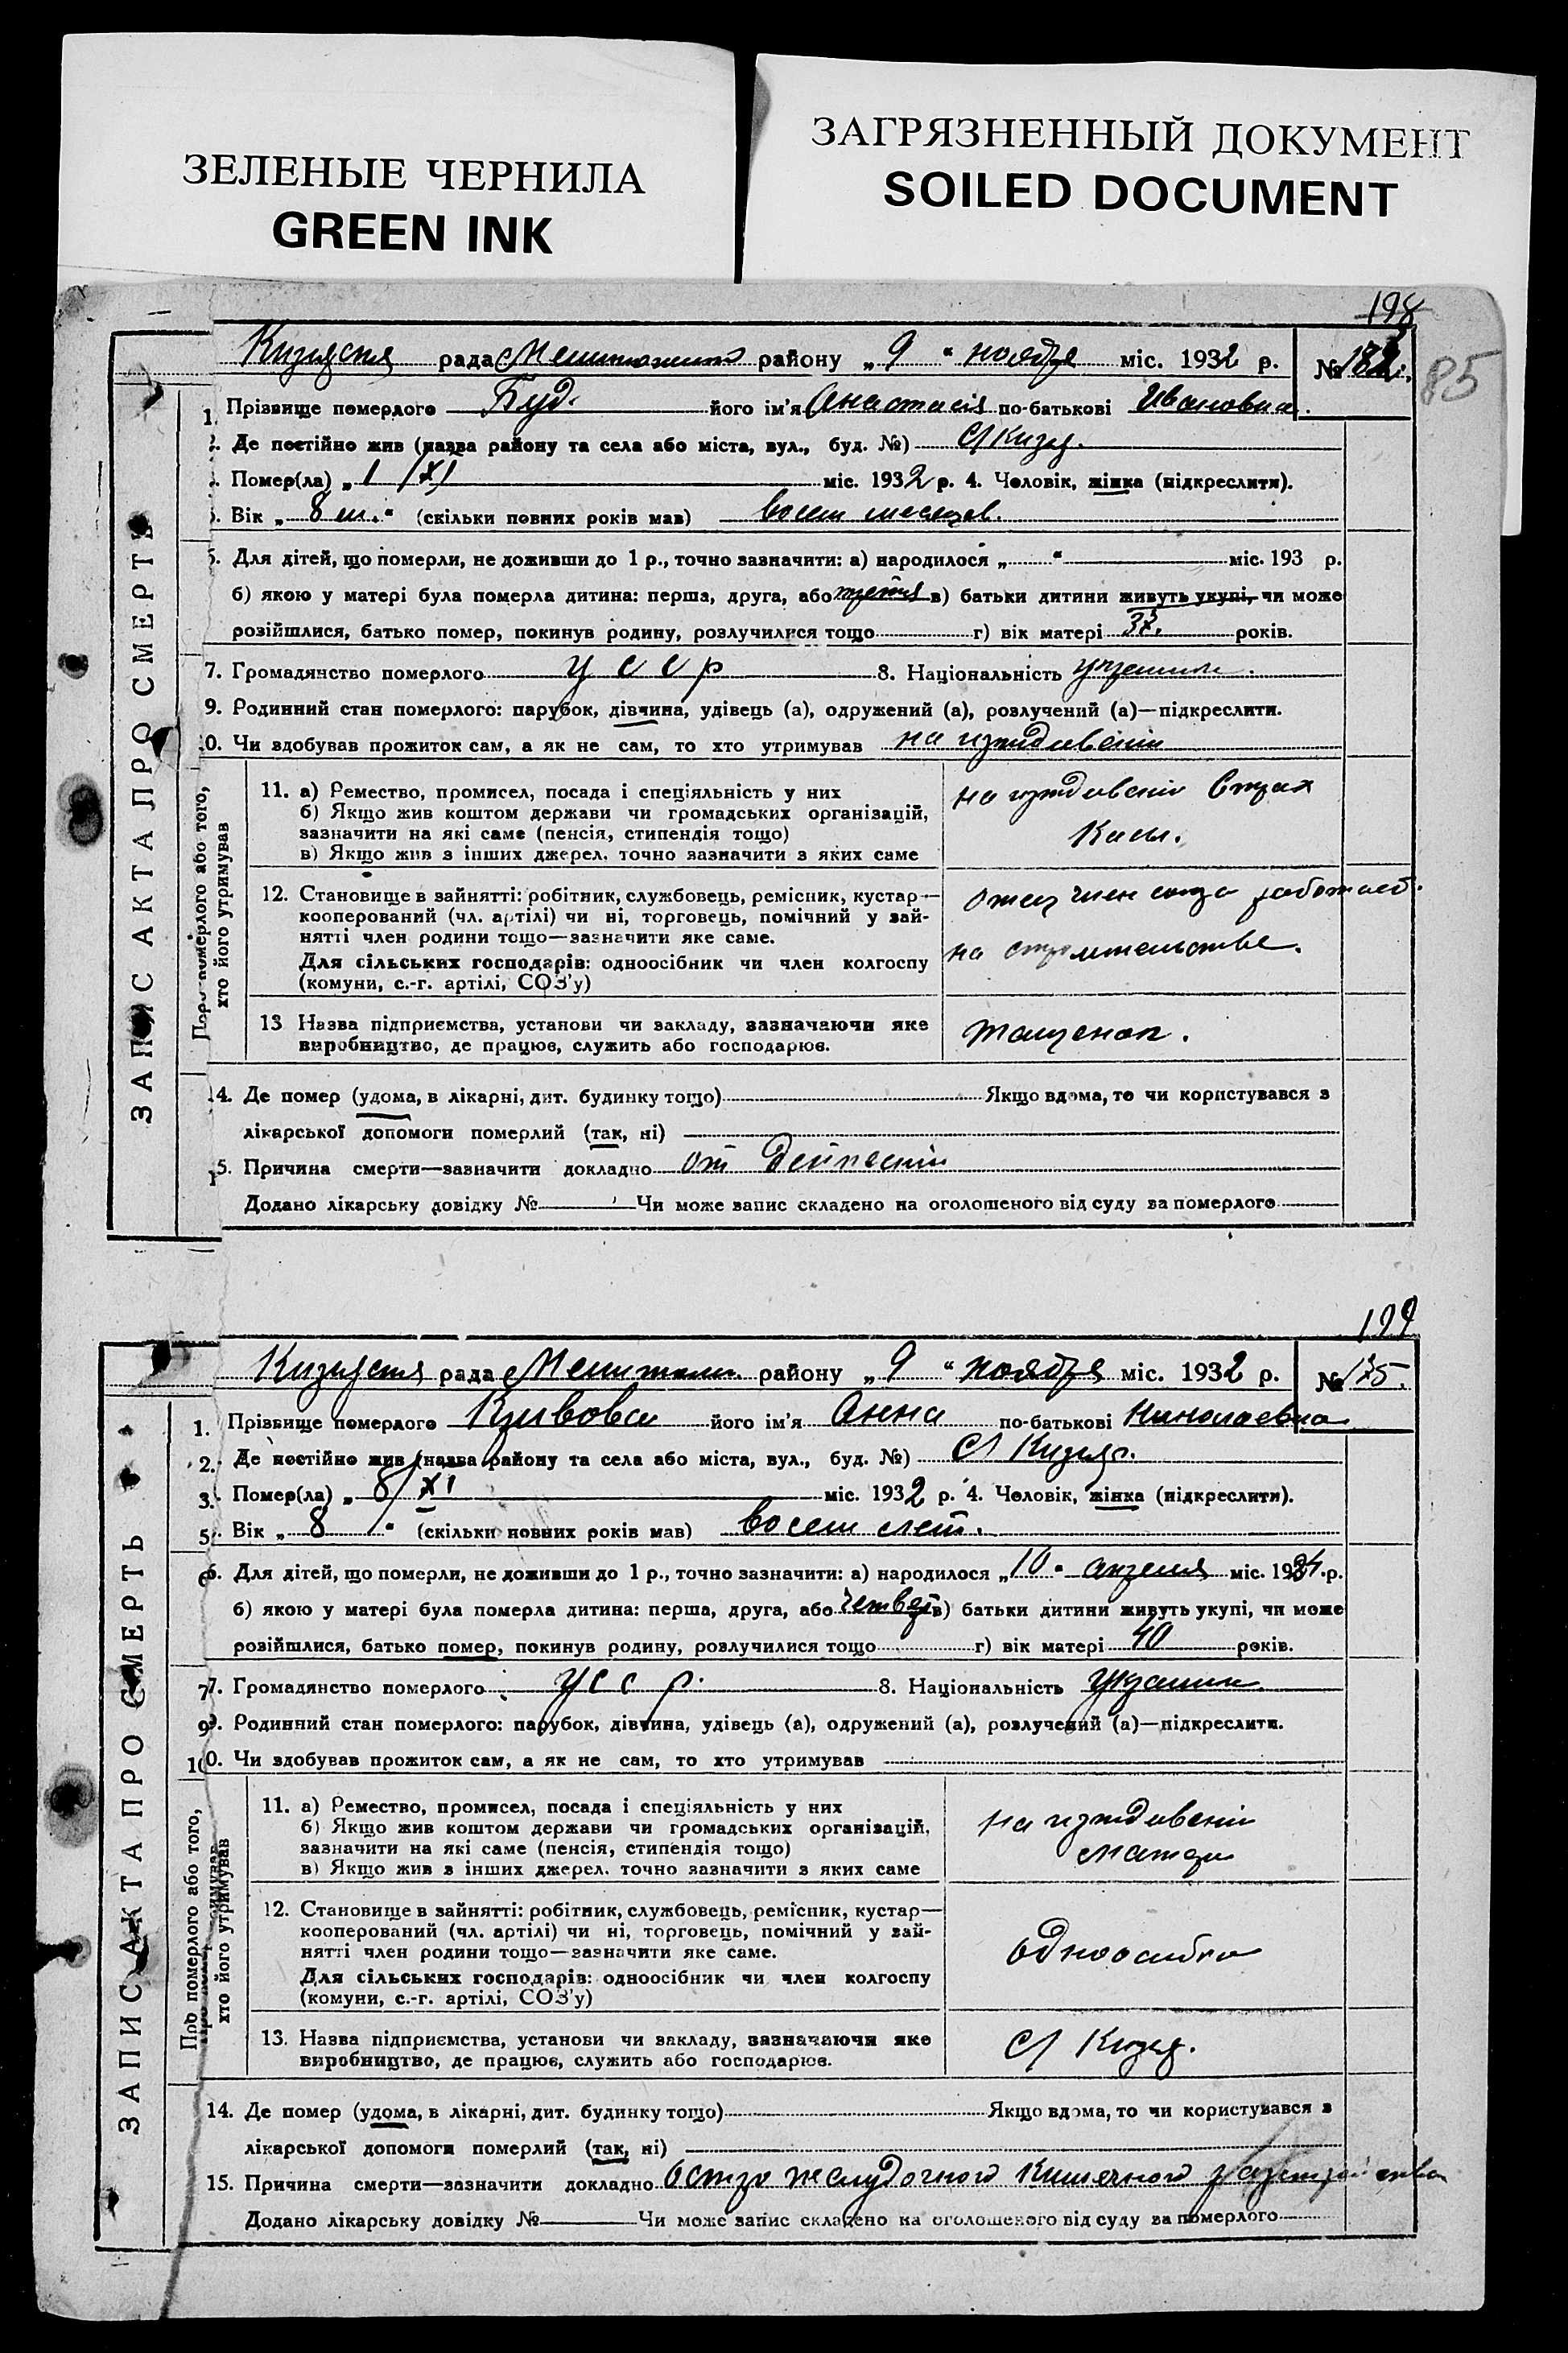 ЗЕЛЕНЫЕ ЧЕРНИЛА
GREEN INK
ЗАГРЯЗНЕННЫЙ ДОКУМЕНТ
SOILED DOCUMENT
198
85
ЗАПИС АКТА ПРО СМЕРТЬ
рада району „ 9 " ноября міс. 1932 р. №
1. Прізвище померлого Буд. його ім'я Анастасія по-батькові Ивановна.
2. Де постійно жив (назва району та села або міста, вул., буд. №) С/Кизяр.
Помер(ла) „ 1 /XI міс. 1932 р. 4. Чоловік, жінка (підкреслити).
5. Вік „ 8 м. " (скільки повних років мав) восем месяцев.
6. Для дітей, що померли, не доживши до 1 р., точно зазначити: а) народилося „ " міс. 193 р.
б) якою у матері була померла дитина: перша, друга, або третя в) батьки дитини живуть укупі, чи може
розійшлися, батько помер, покинув родину, розлучилися тощо г) вік матері 32. років.
7. Громадянство померлого УССР 8. Національність
9. Родинний стан померлого: парубок, дівчина, удівець (а), одружений (а), розлучений (а)—підкреслити.
10. Чи здобував прожиток сам, а як не сам, то хто утримував на иждивении
Про померлого або того,
хто його утримував
11. а) Ремество, промисел, посада і спеціяльність у них
б) Якщо жив коштом держави чи громадських організацій,
зазначити на які саме (пенсія, стипендія тощо)
в) Якщо жив з інших джерел, точно зазначити з яких саме
на иждивении Страх
Касы.
12. Становище в зайнятті: робітник, службовець, ремісник, кустар—
кооперований (чл. артілі) чи ні, торговець, помічний у зай-
нятті член родини тощо—зазначити яке саме.
Для сільських господарів: одноосібник чи член колгоспу
(комуни, с.-г. артілі, СОЗ'у)
отец член союза работает
на строительстве.
13 Назва підприємства, установи чи закладу, зазначаючи яке
виробництво, де працює, служить або господарює.
14. Де помер (удома, в лікарні, дит. будинку тощо) Якщо вдома, то чи користувався з
лікарської допомоги померлий (так, ні)
15. Причина смерти—зазначити докладно от
Додано лікарську довідку № Чи може запис складено на оголошеного від суду за померлого
199
ЗАПИС АКТА ПРО СМЕРТЬ
рада району „ 9 " ноября міс. 1932 р. № 175.
1. Прізвище померлого Кривова його ім'я Анна по-батькові Николаевна
2. Де постійно жив (назва району та села або міста, вул., буд. №) С/ Кизяр.
3. Помер(ла) „ 8/XI міс. 1932 р. 4. Чоловік, жінка (підкреслити).
5. Вік „ 8 " (скільки повних років мав) восем лет.
6. Для дітей, що померли, не доживши до 1 р., точно зазначити: а) народилося „ 10 " апреля міс. 1924 р.
б) якою у матері була померла дитина: перша, друга, або четверт в) батьки дитини живуть укупі, чи може
розійшлися, батько помер, покинув родину, розлучилися тощо г) вік матері 40 років.
7. Громадянство померлого УССР. 8. Національність
9. Родинний стан померлого: парубок, дівчина, удівець (а), одружений (а), розлучений (а)—підкреслити.
10. Чи здобував прожиток сам, а як не сам, то хто утримував
Про померлого або того,
хто його утримував
11. а) Ремество, промисел, посада і спеціяльність у них
б) Якщо жив коштом держави чи громадських організацій,
зазначити на які саме (пенсія, стипендія тощо)
в) Якщо жив з інших джерел, точно зазначити з яких саме
на иждивении
матери
12. Становище в зайнятті: робітник, службовець, ремісник, кустар—
кооперований (чл. артілі) чи ні, торговець, помічний у зай-
нятті член родини тощо—зазначити яке саме.
Для сільських господарів: одноосібник чи член колгоспу
(комуни, с.-г. артілі, СОЗ'у)
13. Назва підприємства, установи чи закладу, зазначаючи яке
виробництво, де працює, служить або господарює.
С/ Кизяр.
14. Де помер (удома, в лікарні, дит. будинку тощо) Якщо вдома, то чи користувався з
лікарської допомоги померлий (так, ні)
15. Причина смерти—зазначити докладно Остро желудочного кишечного расстройства
Додано лікарську довідку № Чи може запис складено на оголошеного від суду за померлого